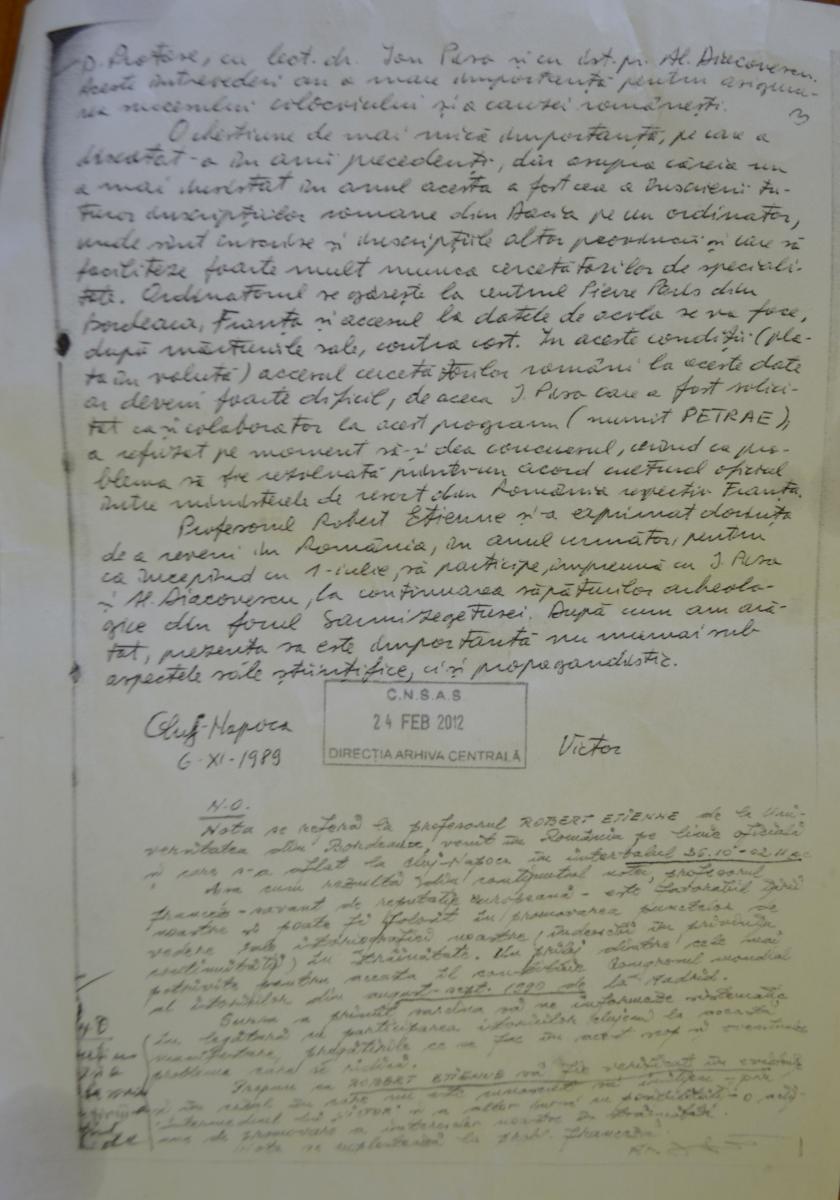 D. Protase, cu lect. dr. Ion Piso și cu ist. pr. Al. Diacovescu.
Aceste întrevederi au o mare importanță pentru asigura-
rea succesului colocviului și a cauzei românești.
3
O chestiune de mai mică importanță, pe care a
discutat-o în anii precedenți, din asupra căreia nu
a mai insistat în anul acesta a fost cea a înscrierii tu-
turor inscripțiilor romane din Dacia pe un ordinator,
unde sînt înscrise și inscripțiile altor provincii și care să
faciliteze foarte mult munca cercetătorilor de speciali-
tate. Ordinatorul se găsește la centrul Pierre Paris din
Bordeaux, Franța și accesul la datele de acolo se va face,
după mărturiile sale, contra cost. În aceste condiții (pla-
ta în valută) accesul cercetătorilor români la aceste date
ar deveni foarte dificil, de aceea I. Piso care a fost solici-
tat ca și colaborator la acest program (numit PETRAE),
a refuzat pe moment să-și dea concursul, cerînd ca pro-
blema să fie rezolvată printr-un acord cultural oficial
între ministerele de resort din România respectiv Franța.
Profesorul Robert Etienne și-a exprimat dorința
de a reveni în România, în anul următor, pentru
ca începînd cu 1-iulie, să participe, împreună cu I. Piso
și Al. Diacovescu, la continuarea săpăturilor arheolo-
gice din forul Sarmizegetusei. După cum am ară-
tat, prezența sa este importantă nu numai sub
aspectele sale științifice, ci și propagandistic.
C.N.S.A.S.
24 FEB 2012
DIRECȚIA ARHIVA CENTRALĂ
Cluj-Napoca
6-XI-1989
Victor
N.O.
Nota se referă la profesorul ROBERT ETIENNE de la Uni-
versitatea din Bordeaux, venit în România pe linie oficială
și care s-a aflat la Cluj-Napoca în intervalul 26.10-02.11
Așa cum rezultă din conținutul notei, profesorul
francez - savant de reputație europeană - este favorabil țării
noastre și poate fi folosit în promovarea punctelor de
vedere ale istoriografiei noastre (îndeosebi în privința
continuității) în străinătate. Un prilej dintre cele mai
potrivite pentru aceasta îl constituie Congresul mondial
al istoricilor din august-sept. 1990 de la Madrid.
Sursa a primit sarcina să ne informeze sistematic
în legătură cu participarea istoricilor clujeni la această
manifestare, pregătirile ce se fac în acest scop și eventuale
probleme care se ridică.
Propun ca ROBERT ETIENNE să fie verificat în evidențe
și în cazul în care nu este cunoscut să inițiem, prin
intermediul lui "VICTOR" și a altor surse cu posibilități, o
de promovare a intereselor noastre în străinătate.
Nota se exploatează la probl. franceză.